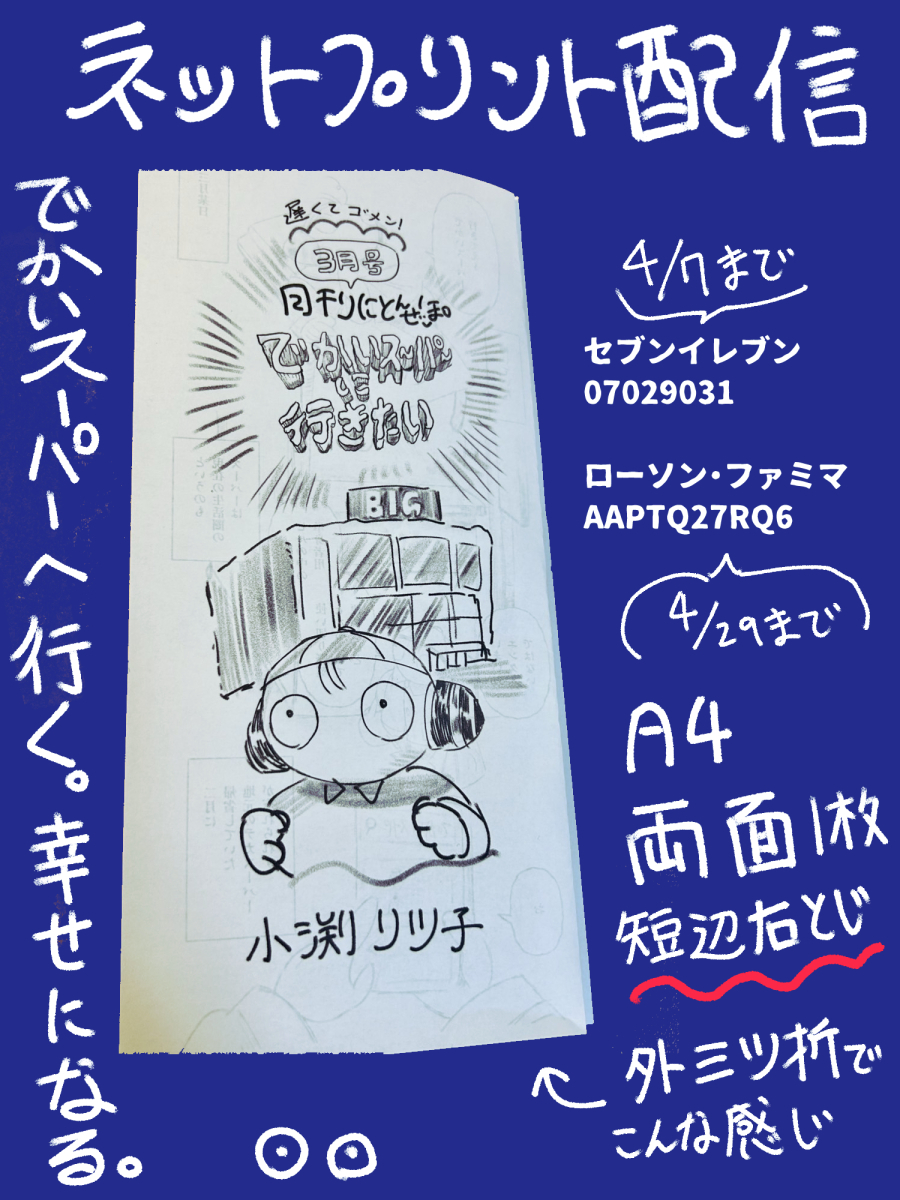 ネットプリント配信
でかいスーパーへ行く。幸せになる。
遅くてゴメン!
3月号
月刊にとんぜっぽ
でかいスーパー
に
行きたい
BIG
小渕リツ子
4/7まで
セブンイレブン
07029031
ローソン・ファミマ
AAPTQ27RQ6
4/29まで
A4
両面1枚
短辺右とじ
外三ツ折で
こんな感じ